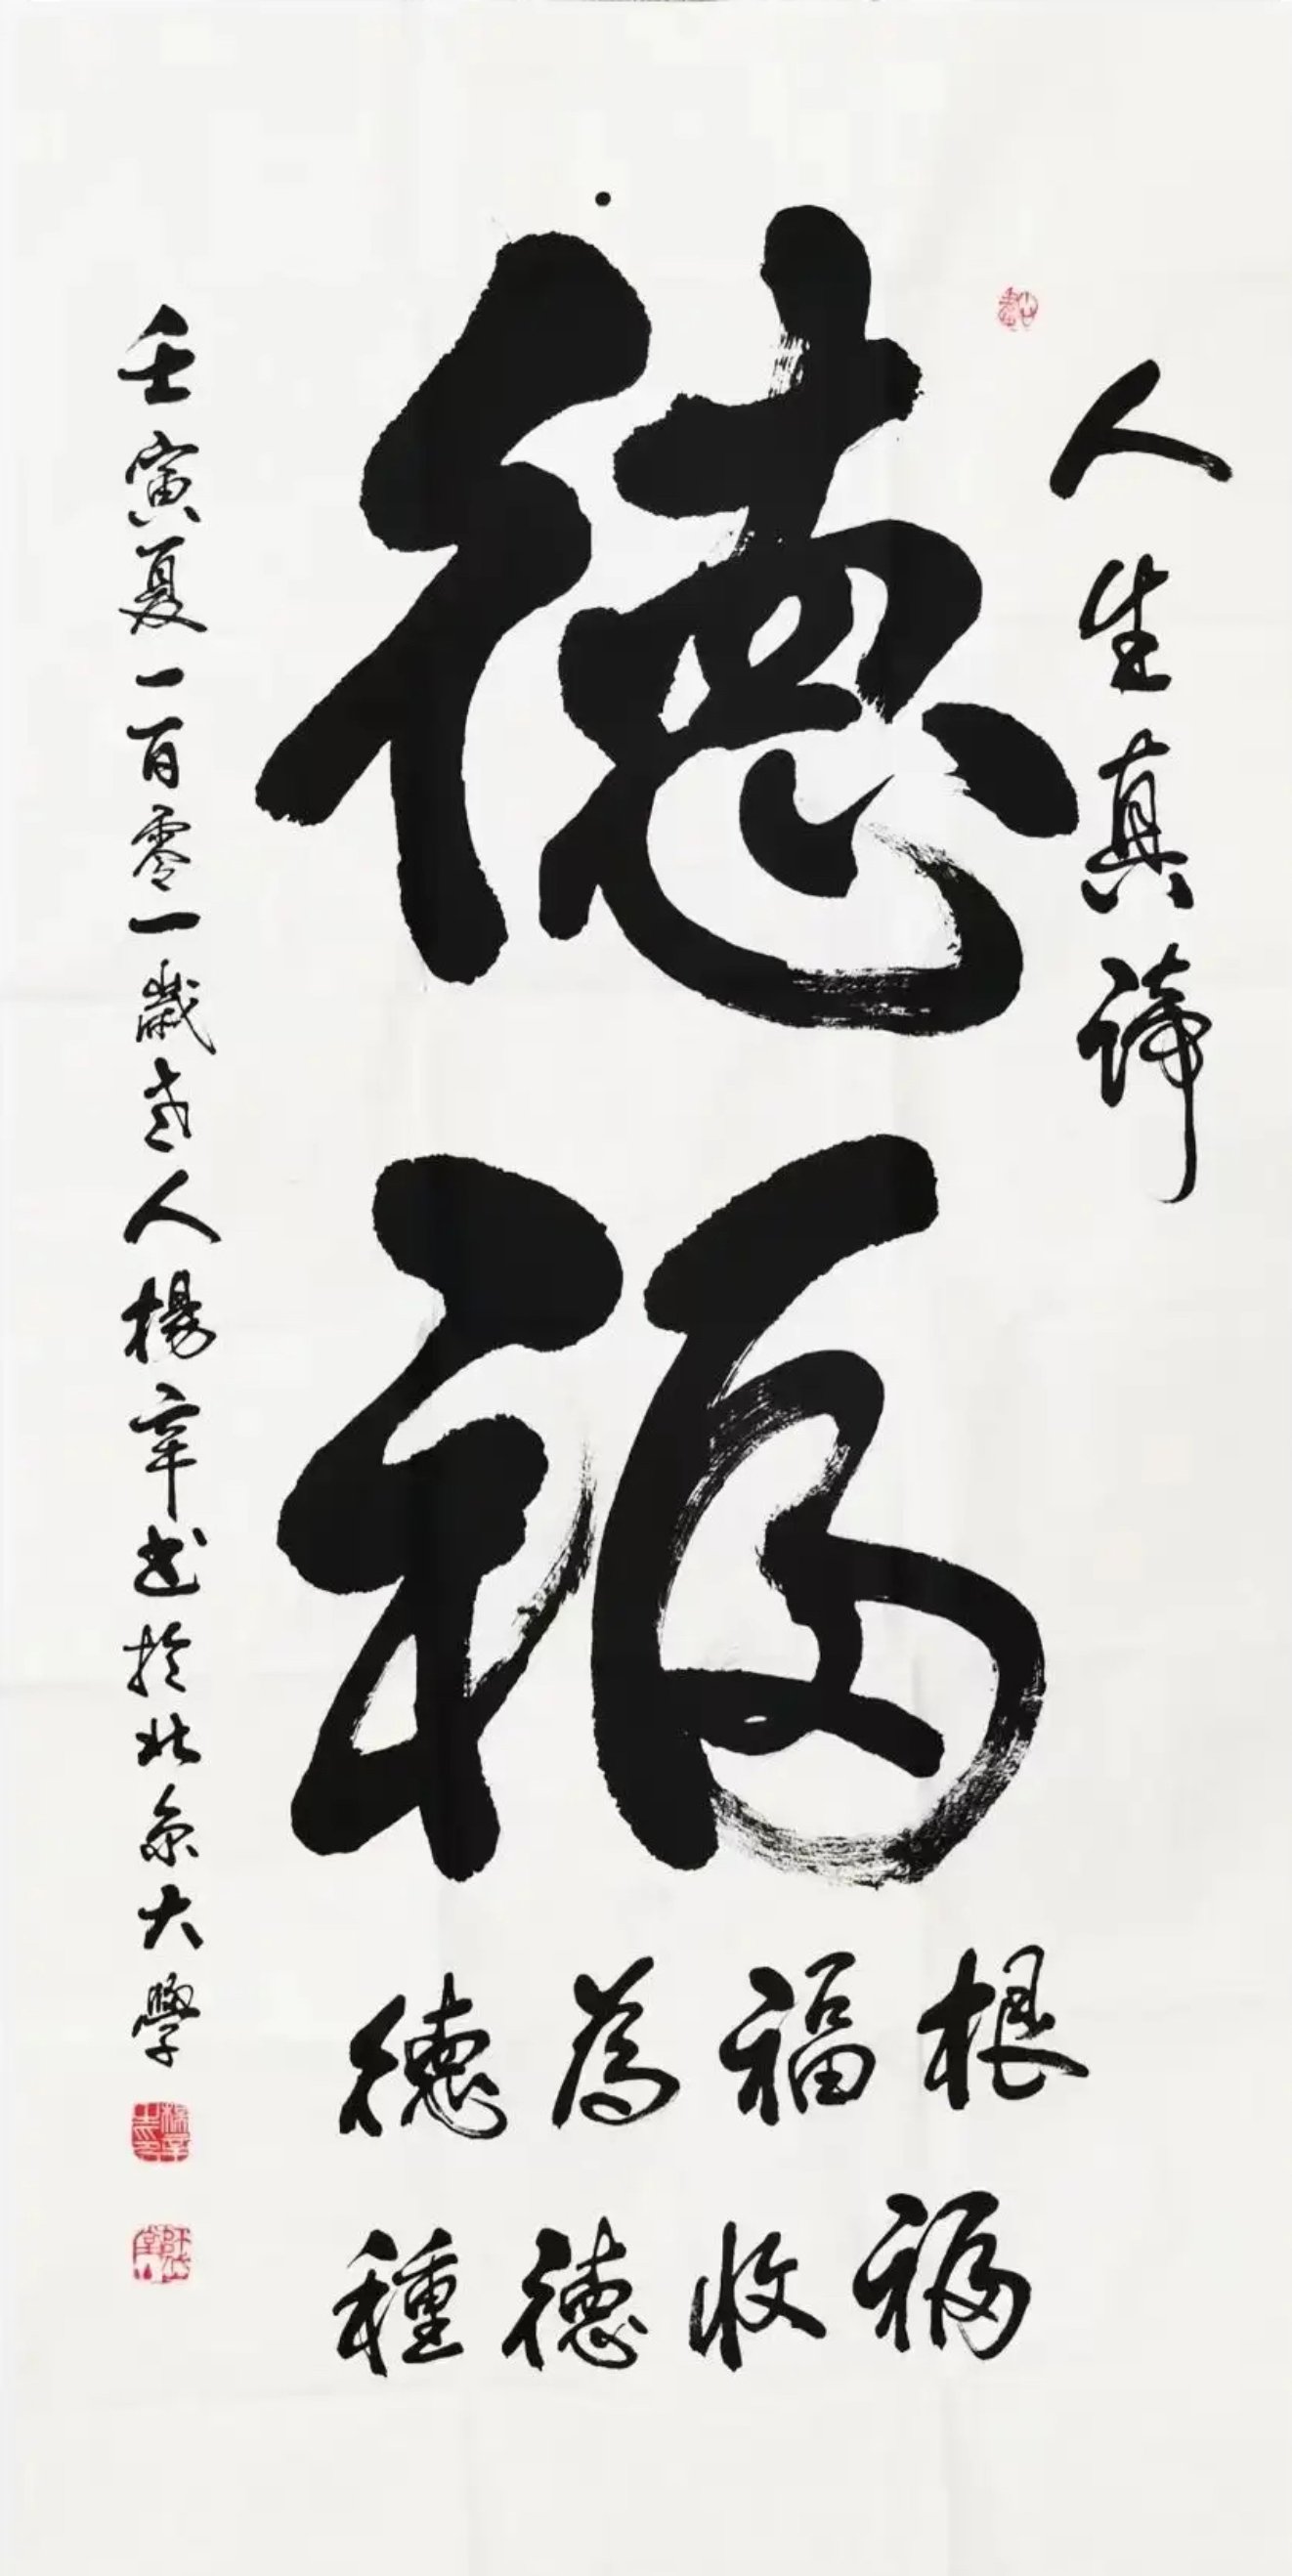 人生真諦
德福
德為福根
種德收福
壬寅夏一百零一歲老人楊辛书於北京大學